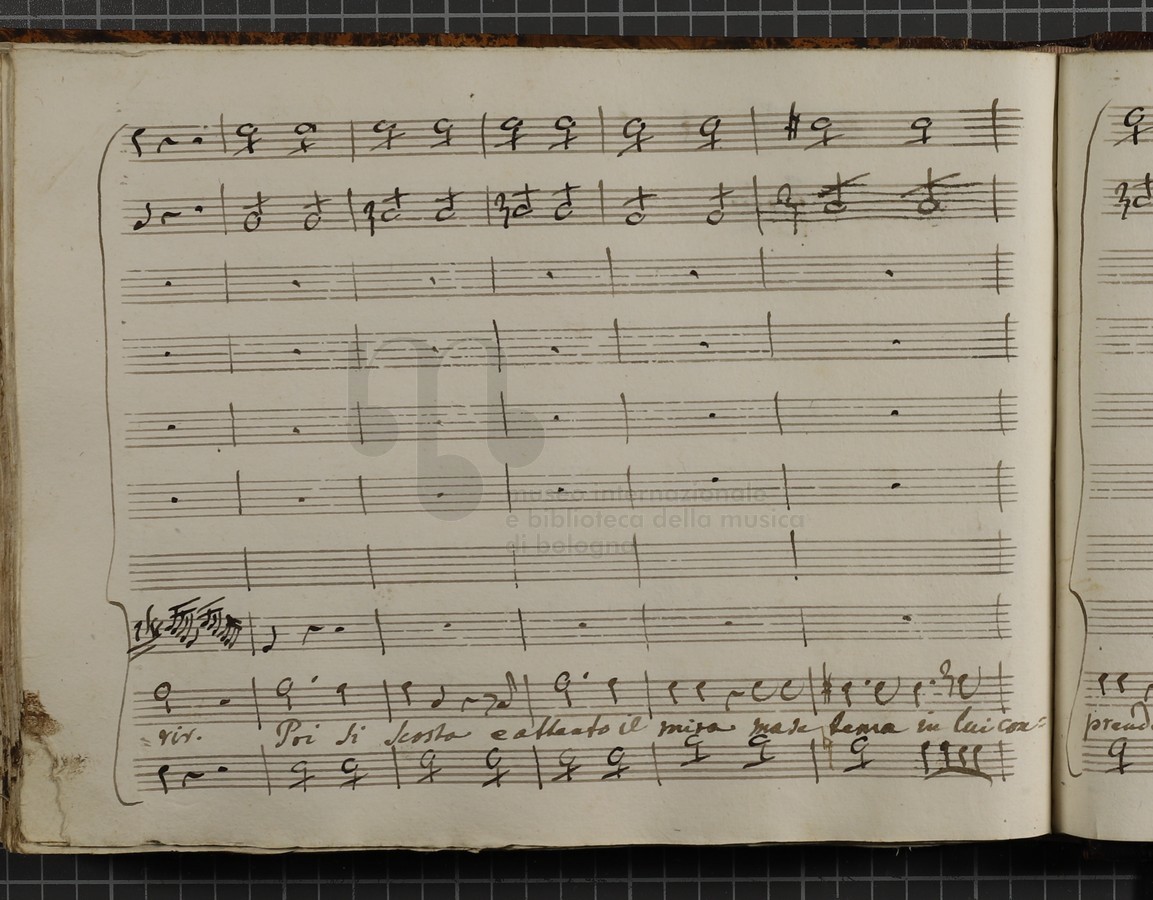 museo internazionale
e biblioteca della musica
di bologna
- rir. Poi si scosta e attento il mira ma se tema in lui con=
prend